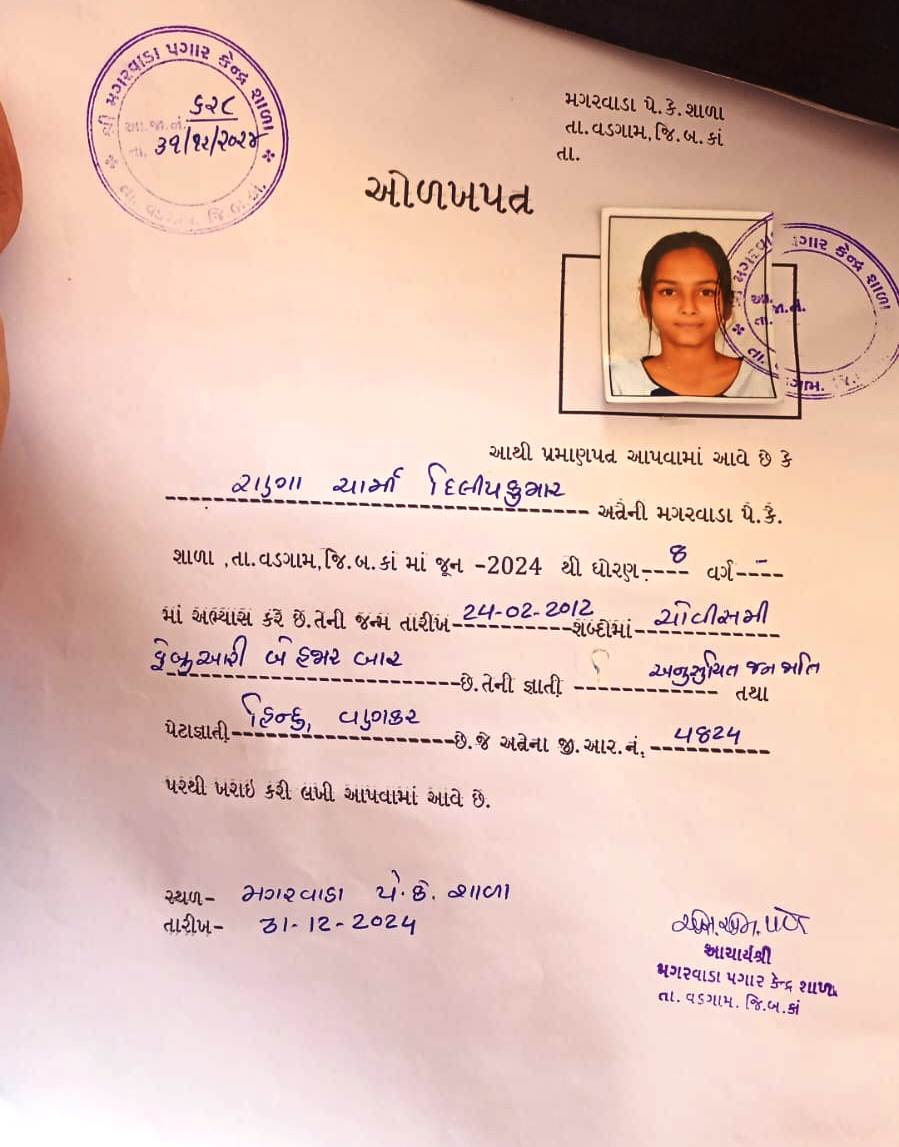 શ્રી મગરવાડા પગાર કેન્દ્ર શાળા
આ.જા.નં. ૬૨૮
તા. ૩૧/૧૨/૨૦૨૪
તા. વડગામ. જિ.બ.કાં.
મગરવાડા પે.કે.શાળા
તા.વડગામ,જિ.બ.કાં
તા.
ઓળખપત્ર
પગાર કેન્દ્ર શાળા
જા.નં.
તા.
આથી પ્રમાણપત્ર આપવામાં આવે છે કે
ચાર્મી દિલીપકુમાર અત્રેની મગરવાડા પે.કે.
શાળા ,તા.વડગામ,જિ.બ.કાં માં જૂન -2024 થી ધોરણ- 8 વર્ગ- –
માં અભ્યાસ કરે છે.તેની જન્મ તારીખ- 24-02-2012 શબ્દોમાં- ચોવીસમી
ફેબ્રુઆરી બે હજાર બાર છે.તેની જ્ઞાતી અનુસુચિત જન જાતિ તથા
પેટાજ્ઞાતી- હિન્દુ, વણકર છે.જે અત્રેના જી.આર.નં. 4824
પરથી ખરાઇ કરી લખી આપવામાં આવે છે.
સ્થળ- મગરવાડા પે.કે. શાળા
તારીખ- 31-12-2024
આચાર્યશ્રી
મગરવાડા પગાર કેન્દ્ર શાળા
તા. વડગામ. જિ.બ.કાં